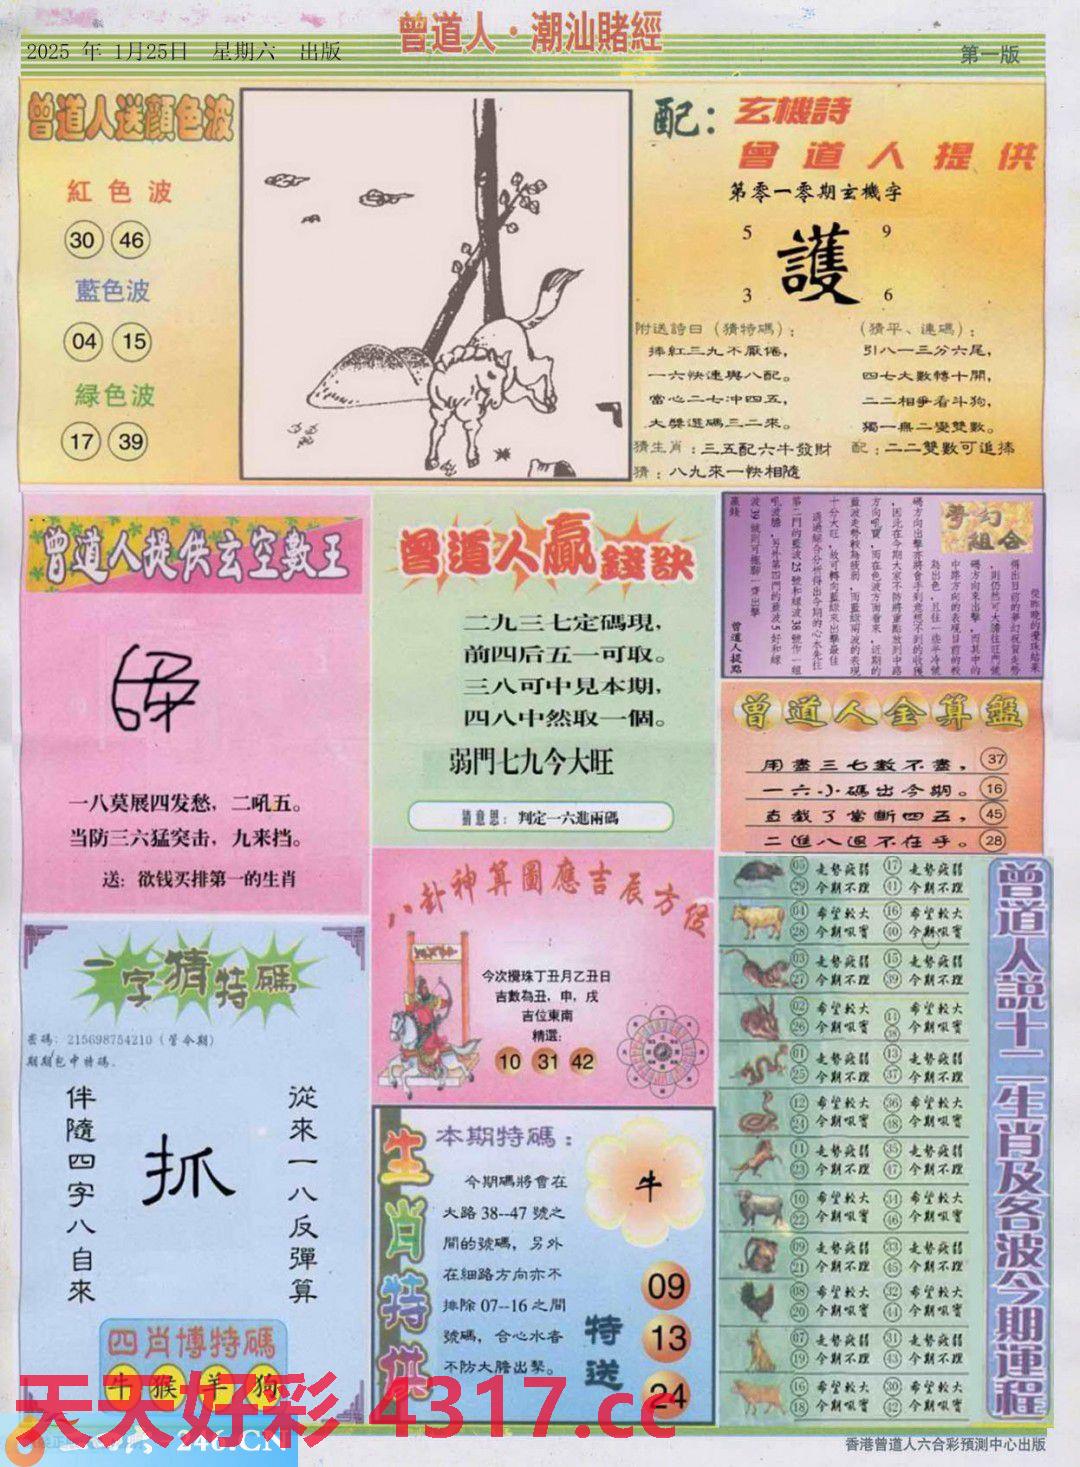 曾道人·潮汕賭經
2025 年 1月25日 星期六 出版
第一版
曾道人送顔色波
紅色波
30 46
藍色波
04 15
緑色波
17 39
配：玄機詩
曾道人提供
第零一零期玄機字
5 9
護
3 6
附送詩曰（猜特碼）：
捧紅三九不厭倦，
一六快連與八配。
當心二七冲四五，
大獎選碼三二來。
猜生肖：三五配六牛發財
猜：八九來一快相隨
（猜平、連碼）：
引八一三分六尾，
四七大數轉十開，
二二相爭看斗狗，
獨一無二變雙數。
配：二二雙數可追捧
曾道人提供玄空數王
一八莫展四发愁，二吼五。
当防三六猛突击，九来挡。
送：欲钱买排第一的生肖
曾道人贏錢訣
二九三七定碼現，
前四后五一可取。
三八可中見本期，
四八中然取一個。
弱門七九今大旺
猜意思：判定一六進兩碼
夢幻組合
曾道人提點
曾道人金算盤
用盡三七數不盡， 37
一六小碼出今期。 16
直截了當斷四五， 45
二進八退不在乎。 28
一字猜特碼
密碼：215698754210（管今期）
期期包中特碼.
從來一八反彈算
抓
伴隨四字八自來
四肖博特碼
牛 猴 羊 狗
八卦神算圖應吉辰方位
今次攪珠丁丑月乙丑日
吉數為丑，申，戌
吉位東南
精選：
10 31 42
生肖特供
本期特碼：
今期碼將會在
大路 38--47 號之
間的號碼，另外
在細路方向亦不
排除 07--16 之間
號碼，合心水者
不防大膽出擊。
牛
特送
09
13
24
曾道人説十二生肖及各波今期運程
05 走勢疲弱 17 走勢疲弱
29 今期不理 41 今期不理
04 希望較大 16 希望較大
28 今期吼實 40 今期吼實
03 走勢疲弱 15 走勢疲弱
27 今期不理 39 今期不理
02 希望較大
26 今期吼實
01 走勢疲弱 13 走勢疲弱
25 今期不理 37 今期不理
12 希望較大 36 希望較大
24 今期吼實 48 今期吼實
11 走勢疲弱 35 走勢疲弱
23 今期不理 47 今期不理
10 希望較大 34 希望較大
22 今期吼實 46 今期吼實
09 走勢疲弱 33 走勢疲弱
21 今期不理 45 今期不理
08 希望較大 32 希望較大
20 今期吼實 44 今期吼實
07 走勢疲弱 31 走勢疲弱
19 今期不理 43 今期不理
希望較大 30 希望較大
18 今期吼實 42 今期吼實
天天好彩 4317.cc
246.CN
香港曾道人六合彩預測中心出版